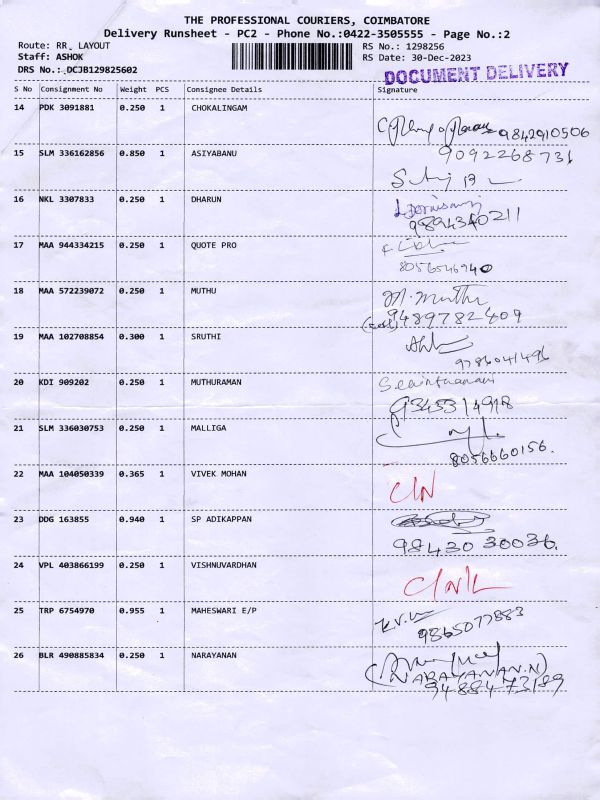 THE PROFESSIONAL COURIERS, COIMBATORE
Delivery Runsheet - PC2 - Phone No.:0422-3505555 - Page No.:2
Route: RR. LAYOUT RS No.: 1298256
Staff: ASHOK RS Date: 30-Dec-2023
DRS No.: DCJB129825602 DOCUMENT DELIVERY
S No Consignment No Weight PCS Consignee Details Signature
14 PDK 3091881 0.250 1 CHOKALINGAM
9842910506
15 SLM 336162856 0.850 1 ASIYABANU 9092268731
16 NKL 3307833 0.250 1 DHARUN
9894340211
17 MAA 944334215 0.250 1 QUOTE PRO
8056546940
18 MAA 572239072 0.250 1 MUTHU M. Muthu
9489782409
19 MAA 102708854 0.300 1 SRUTHI
9786041496
20 KDI 909202 0.250 1 MUTHURAMAN
9345314918
21 SLM 336030753 0.250 1 MALLIGA
8056660156.
22 MAA 104050339 0.365 1 VIVEK MOHAN
C/N
23 DDG 163855 0.940 1 SP ADIKAPPAN
98430 30036.
24 VPL 403866199 0.250 1 VISHNUVARDHAN
C/N/L
25 TRP 6754970 0.955 1 MAHESWARI E/P
9865077883
26 BLR 490885834 0.250 1 NARAYANAN
(NARAYANAN.N)
9488473189